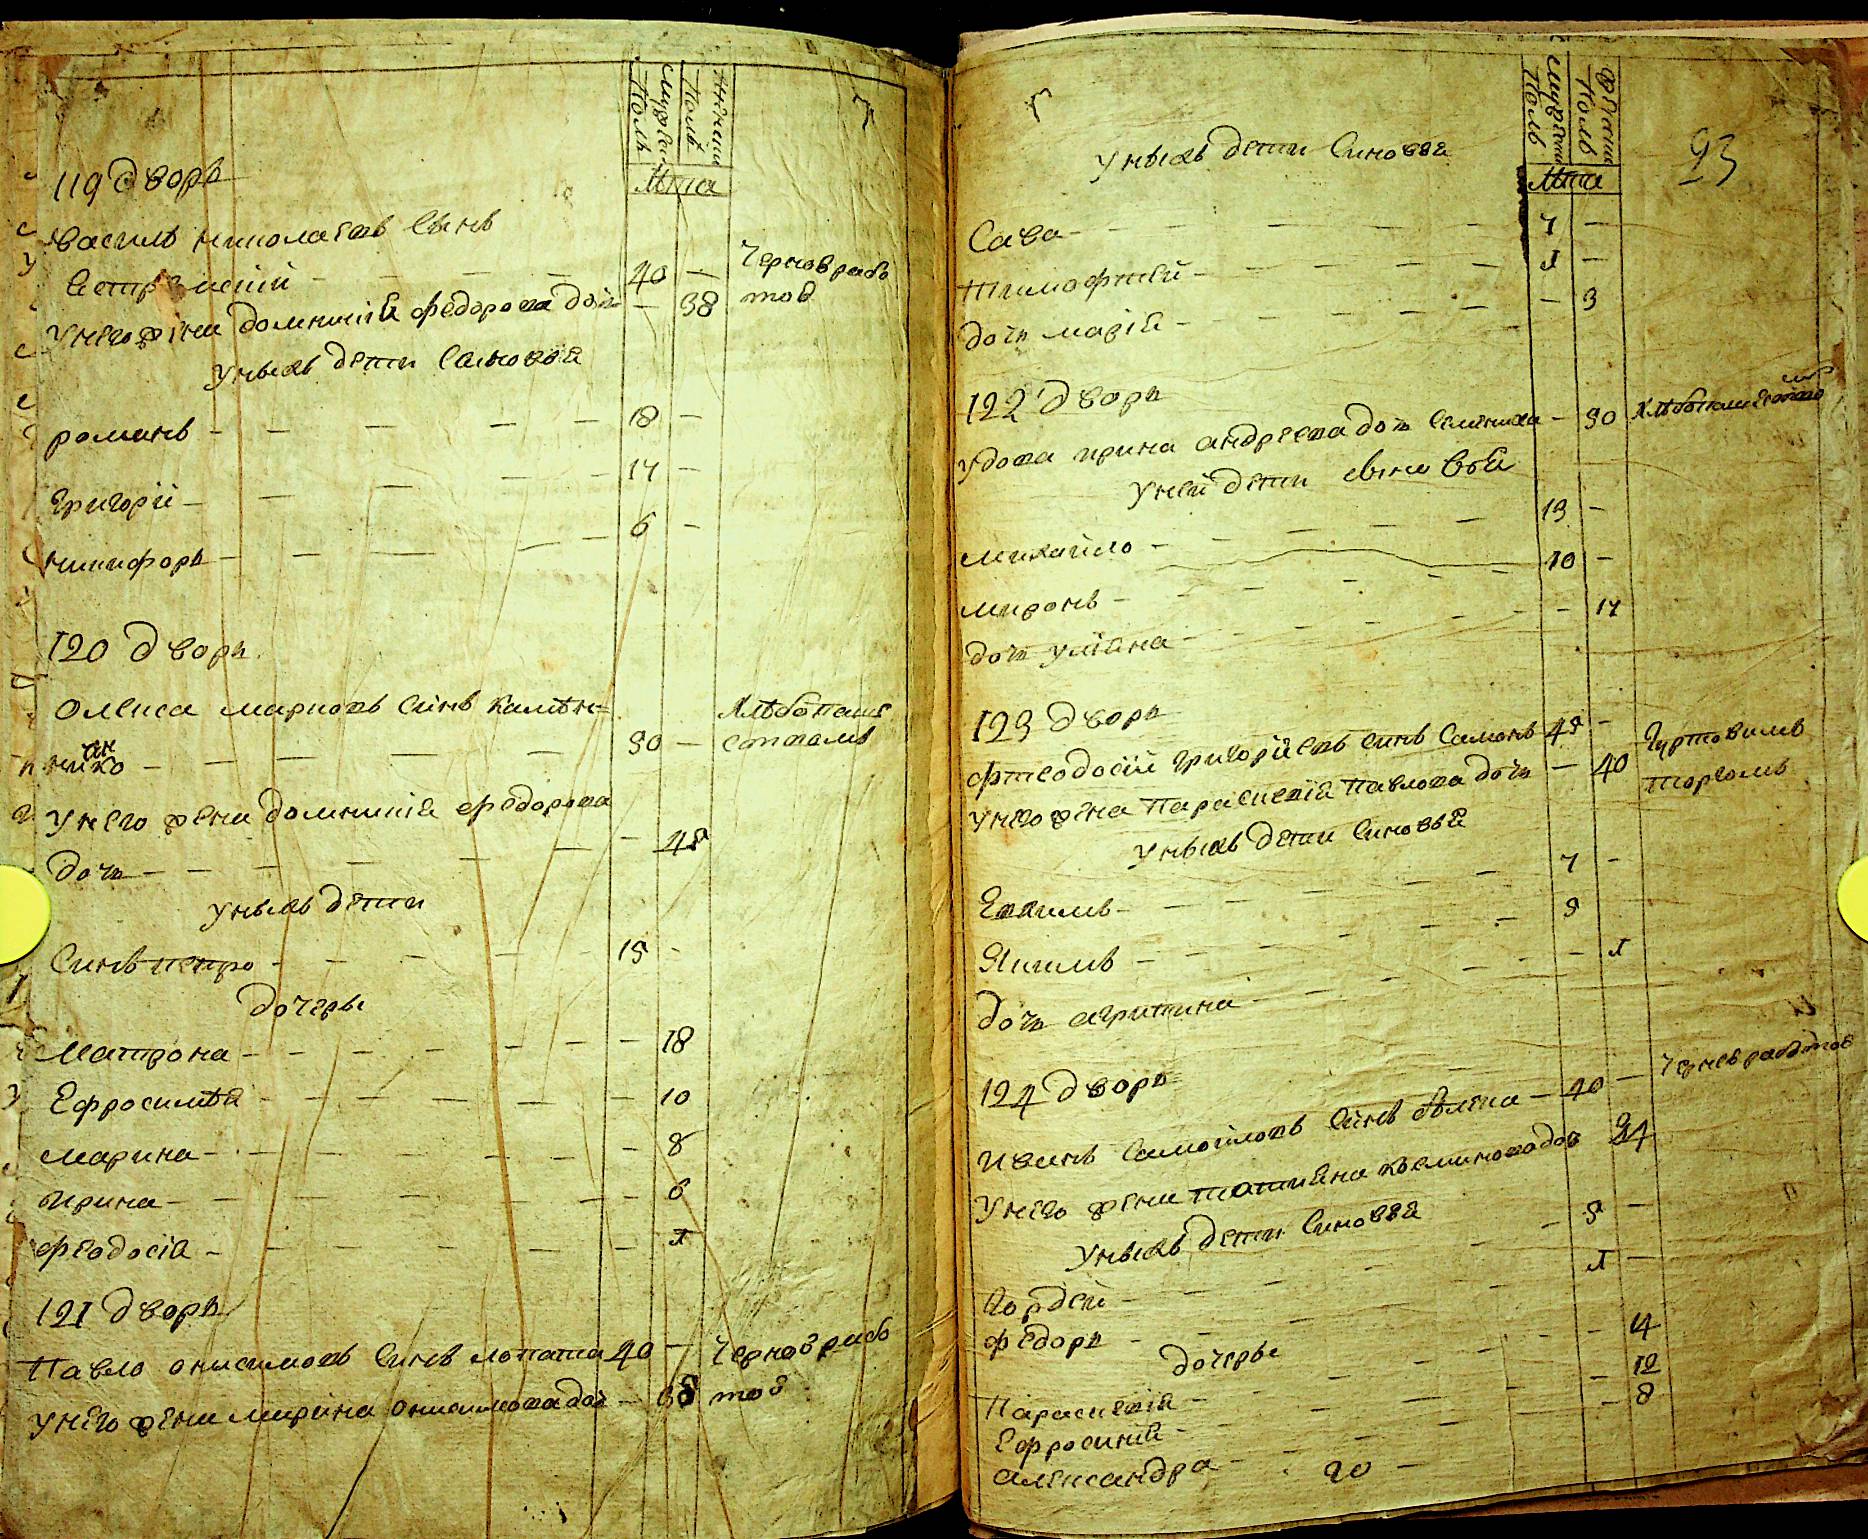 мужеска Полъ
женска Полъ
Лѣта
119 дворъ
Василь николаевъ синъ
Ястр
40 — Чернов рабо
У него жена домникия федорова доч — 38 тов
У нихъ дети синовья
романъ — 18 —
Григорій — 14 —
никифоръ — 6 —
120 дворъ
Олекса марковъ синъ Калѣн=
ниченко — 50 — Хлѣбопаше
ством
У него жена домникия федорова
дочъ — 45
У нихъ дети
Синъ петро — 15 —
дочеры
Матрона — 18
Ефросимѣя — 10
марина — 8
Ирина — 6
феодосія — 1
121 дворъ
Павло онисимовъ синъ лопата 40 — Чернов рабо
У него жена марина онисимова доч — 38 тов
23
мужеска Полъ
женска Полъ
Лѣта
У нихъ дети синовья
Сава — 4 —
Тимофтей — 1 —
дочъ мария — 3
122 дворъ
удова ирина андреева дочъ семениха — 50 Хлѣбопашество
мъ
У ней дети синовья
михайло — 13 —
миронъ — 10 —
дочъ улияна — 14
123 дворъ
фтеодосій григоріевъ синъ Самонъ 45 — Гуртовимъ
У него жена Параскевія Павлова дочъ — 40 торгомъ
У нихъ дети синовья
Евхимъ — 7 —
Якимъ — 5
дочъ агрипина — 1
124 дворъ
Иванъ Самойловъ синъ 40 — Чернов работов
У него жена татияна космінова доч 34
У нихъ дети синовья
Гордей — 5 —
федоръ — 1 —
дочеры
Параскевія — 14
Ефросиния — 12
александра — 8
20